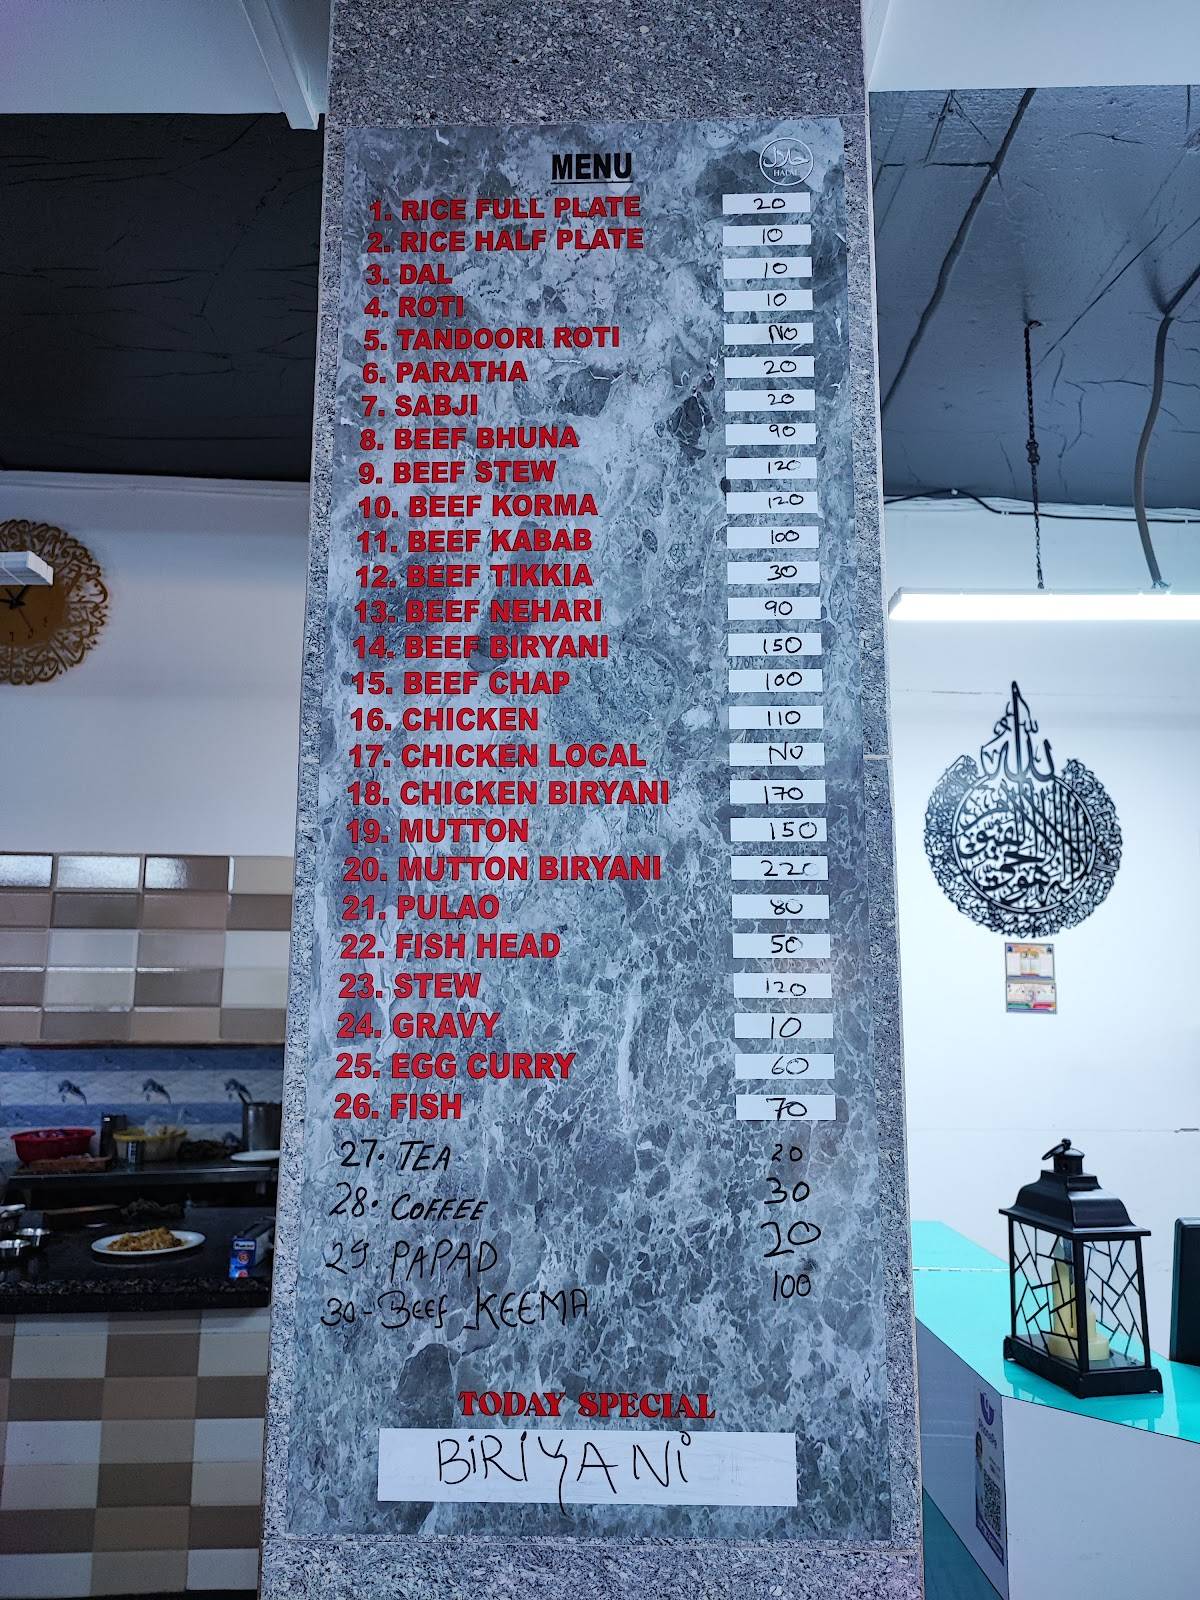 MENU
حلال
HALAL
1. RICE FULL PLATE 20
2. RICE HALF PLATE 10
3. DAL 10
4. ROTI 10
5. TANDOORI ROTI NO
6. PARATHA 20
7. SABJI 20
8. BEEF BHUNA 90
9. BEEF STEW 120
10. BEEF KORMA 120
11. BEEF KABAB 100
12. BEEF TIKKIA 30
13. BEEF NEHARI 90
14. BEEF BIRYANI 150
15. BEEF CHAP 100
16. CHICKEN 110
17. CHICKEN LOCAL NO
18. CHICKEN BIRYANI 170
19. MUTTON 150
20. MUTTON BIRYANI 220
21. PULAO 80
22. FISH HEAD 50
23. STEW 120
24. GRAVY 10
25. EGG CURRY 60
26. FISH 70
27. TEA 20
28. COFFEE 30
29 PAPAD 20
30-BEEF KEEMA 100
TODAY SPECIAL
BiRiYANi